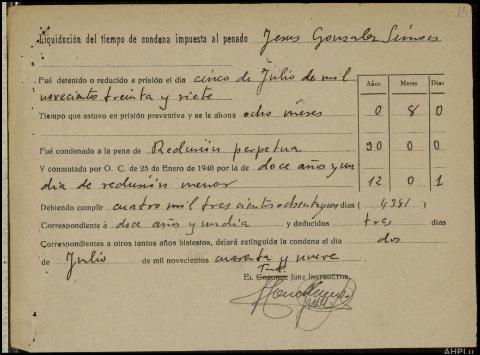 15
Liquidación del tiempo de condena impuesta al penado Jesus Gonzalez
Fué detenido o reducido a prisión el día cinco de Julio de mil
novecientos treinta y siete
Años Meses Días
Tiempo que estuvo en prisión preventiva y se le abona ocho meses 0 8 0
Fué condenado a la pena de Reclusión perpetua 30 0 0
Y conmutada por O. C. de 25 de Enero de 1940 por la de doce años y un
dia de reclusión menor 12 0 1
Debiendo cumplir cuatro mil trescientos ochenta y un días (4381)
Correspondiente á doce años y un dia y deducidos tres días
Correspondientes a otros tantos años bisiestos, dejará extinguida la condena el día dos
de Julio de mil novecientos cuarenta y nueve
EL CORONEL JUEZ INSTRUCTOR,
AHPLu